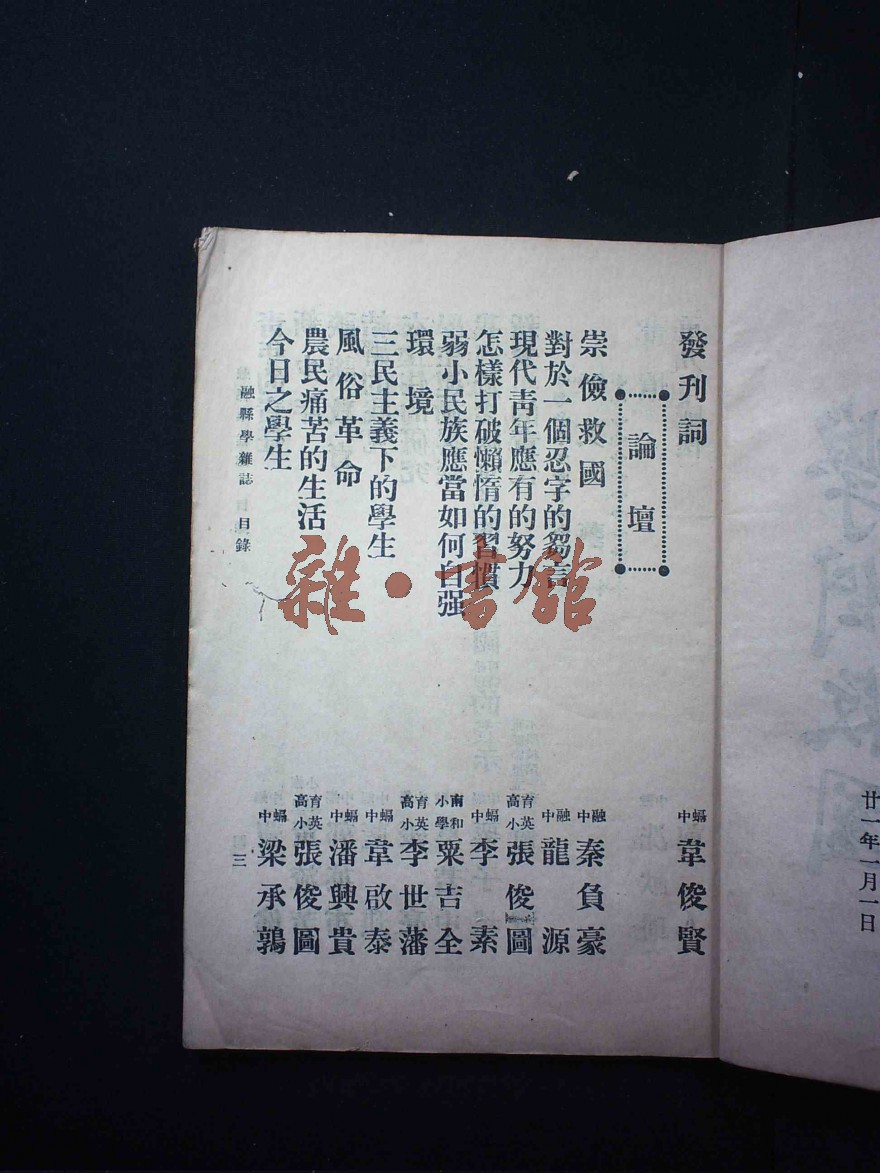 廿一年一月一日
發刊詞 蝠中 韋俊賢
論壇
崇儉救國 融中 秦負豪
對於一個忍字的芻言 融中 龍源
現代青年應有的努力 育英高小 張俊圖
怎樣打破懶惰的習慣 蝠中 李素
弱小民族應當如何自强 南和小學 粟吉全
環境 育英高小 李世藩
三民主義下的學生 蝠中 韋啟泰
風俗革命 蝠中 潘興貴
農民痛苦的生活 育英高小 張俊圖
今日之學生 蝠中 梁承鶉
融縣學雜誌 目錄 三
雜·書館